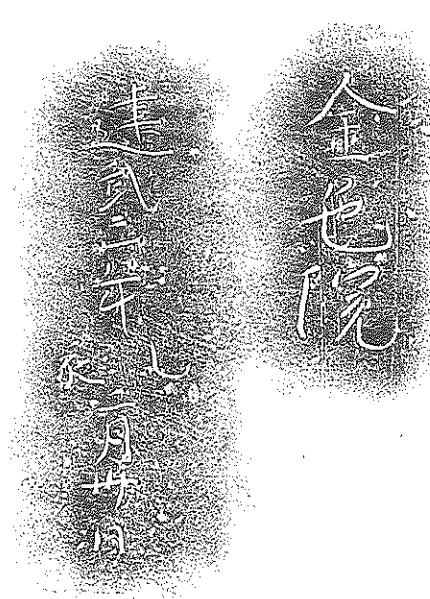 金色院
建武二年乙亥二月卅日